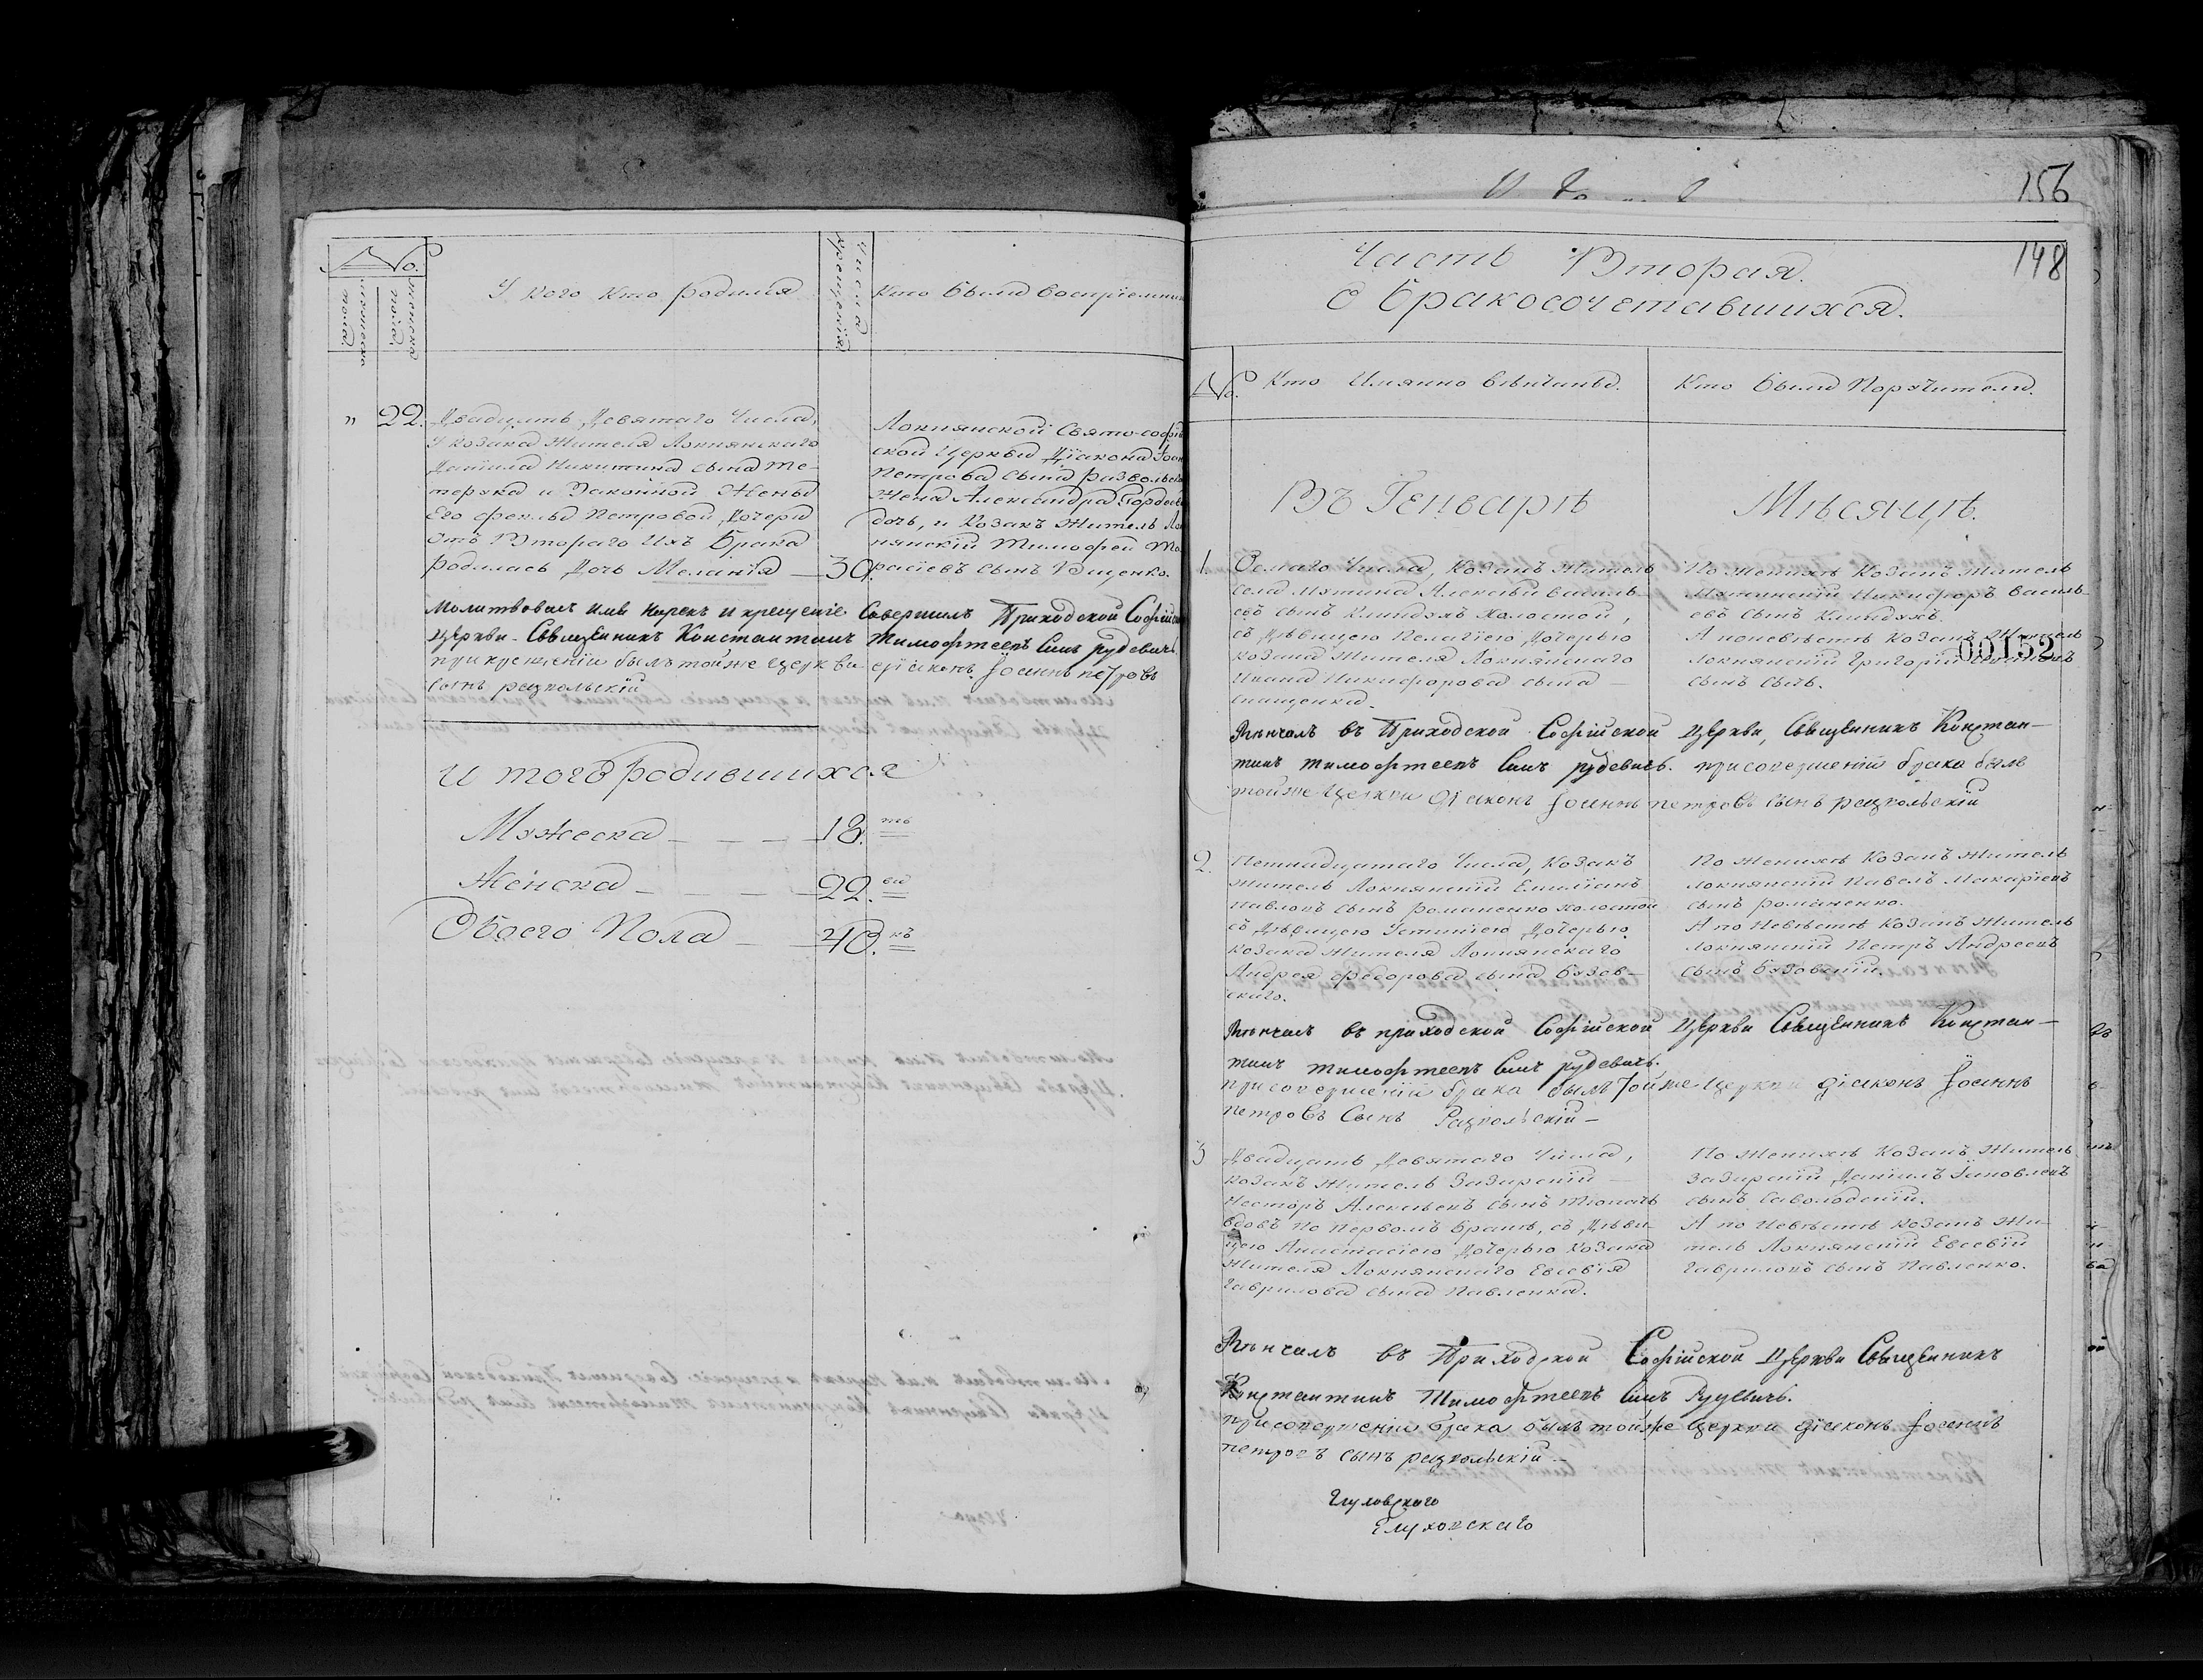 №
мужеска пола.
женска пола.
У кого кто родился
Числа крещения.
Кто были восприемник
" 22. Двадцять Девятаго Числа,
У козака Жителя Локнянскаго
Даніила Никитина сына Те-
терука и Законной Жены
Его Феклы Петровой, дочери
Отъ Втораго Ихъ Брака
родилась Дочь Меланія — 30.
Локнянской Свято-Софій
ской Церкви Діакона Іоан
Петрова сына Разпольск
Жена Александра Гордеева
дочь, и Козакъ Житель Ло
нянскій Тимофей Та
расіевъ сынъ Ващенко.
Молитвовалъ имя нарекъ и крещеніе Совершилъ Приходской Софійск
Церкви Священникъ Константинъ Тимофеевъ Сынъ Рудевичъ
при крещеніи былъ тойже Церкви діаконъ Іоаннъ петровъ
сынъ разпольскій
И того родившихся
Мужеска — — — 18. ть
Женска — — — 22. ва
Обоего Пола — 40. къ
156
148
Часть Вторая.
О Бракосочетавшихся.
№. Кто Имянно вѣнчаны. Кто были Поручители.
Въ Генварѣ Мѣсяцѣ.
1. Седмаго Числа, Козакъ Житель
села Мутина Алексѣй василь-
евъ сынъ Клиндухъ холостой,
съ Дѣвицею Пелагіею Дочерью
козака Жителя Локнянскаго
Ивана Никифорова сына —
По Женихѣ Козакъ Житель
Мутинскій Никифоръ василь-
евъ сынъ Клиндухъ.
А поневѣстѣ козакъ Житель
Локнянскій Григорій
сынъ Сычъ.
00152
Вѣнчалъ въ Приходской Софійской Церкви, Священникъ Констан-
тинъ Тимофеевъ Сынъ рудевичъ. при совершеніи брака былъ
тойже Церкви діаконъ Іоаннъ петровъ сынъ разпольскій
2. Петнадцатаго Числа, Козакъ
житель Локнянскій Емиліанъ
Павловъ сынъ романенко холостой
съ Дѣвицею Устиніею Дочерью
козака Жителя Локнянскаго
Андрея Федорова сына Бузов-
скаго.
По женихѣ Козакъ Житель
Локнянскій Павелъ Макаріевъ
сынъ романенко.
А по Невѣстѣ Козакъ Житель
Локнянскій Петръ Андреевъ
сынъ Бузовскій.
Вѣнчалъ въ приходской Софійской Церкви Священникъ Констан-
тинъ Тимофеевъ Сынъ рудевичъ.
при совершеніи брака былъ тойже Церкви діаконъ Іоаннъ
петровъ Сынъ Разпольскій —
3 Двадцать Девятаго Числа,
козакъ Житель Зазирскій —
Несторъ Алексѣевъ сынъ
вдовъ по первомъ бракѣ, съ Дѣви-
цею Анастасіею Дочерью козака
Жителя Локнянскаго Евсевія
Гаврилова сына Павленка.
По Женихѣ Козакъ Житель
Зазирскій Даніилъ Іаковлевъ
сынъ
А по Невѣстѣ козакъ Жи-
тель Локнянскій Евсевій
Гавриловъ сынъ Павленко.
Вѣнчалъ въ Приходской Софійской Церкви Священникъ
Константинъ Тимофеевъ Сынъ Рудевичъ.
при совершеніи брака былъ тойже Церкви діаконъ Іоаннъ
петровъ сынъ разпольскій —
Глуховскаго